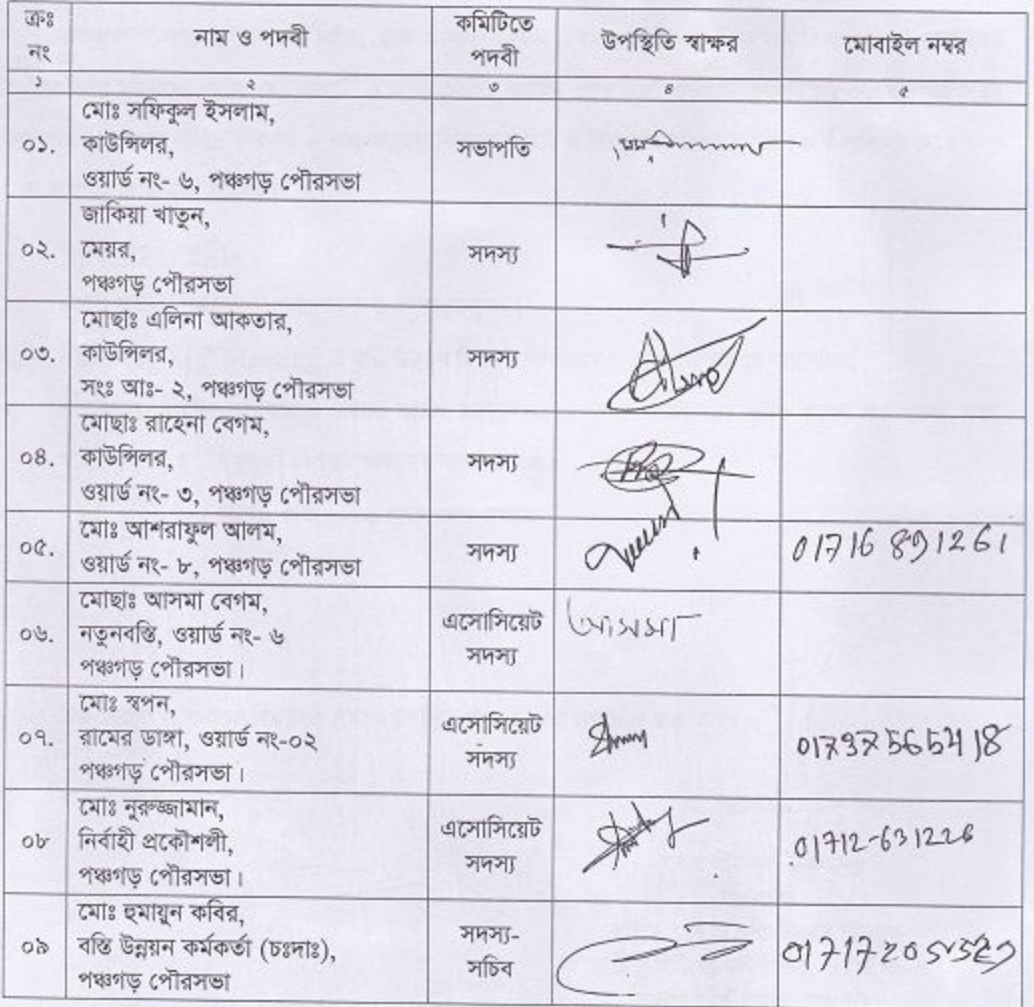 ক্রঃ নং নাম ও পদবী কমিটিতে পদবী উপস্থিতি স্বাক্ষর মোবাইল নম্বর
১ ২ ৩ ৪ ৫
০১. মোঃ সফিকুল ইসলাম,
কাউন্সিলর,
ওয়ার্ড নং- ৬, পঞ্চগড় পৌরসভা
সভাপতি
০২. জাকিয়া খাতুন,
মেয়র,
পঞ্চগড় পৌরসভা
সদস্য
০৩. মোছাঃ এলিনা আকতার,
কাউন্সিলর,
সংঃ আঃ- ২, পঞ্চগড় পৌরসভা
সদস্য
০৪. মোছাঃ রাহেনা বেগম,
কাউন্সিলর,
ওয়ার্ড নং- ৩, পঞ্চগড় পৌরসভা
সদস্য
০৫. মোঃ আশরাফুল আলম,
ওয়ার্ড নং- ৮, পঞ্চগড় পৌরসভা
সদস্য
01716 891261
০৬. মোছাঃ আসমা বেগম,
নতুনবস্তি, ওয়ার্ড নং- ৬
পঞ্চগড় পৌরসভা।
এসোসিয়েট
সদস্য
আসমা
০৭. মোঃ স্বপন,
রামের ডাঙ্গা, ওয়ার্ড নং-০২
পঞ্চগড় পৌরসভা।
এসোসিয়েট
সদস্য
০৮ মোঃ নুরুজ্জামান,
নির্বাহী প্রকৌশলী,
পঞ্চগড় পৌরসভা।
এসোসিয়েট
সদস্য
01712-631226
০৯ মোঃ হুমায়ুন কবির,
বস্তি উন্নয়ন কর্মকর্তা (চঃদাঃ),
পঞ্চগড় পৌরসভা
সদস্য-
সচিব